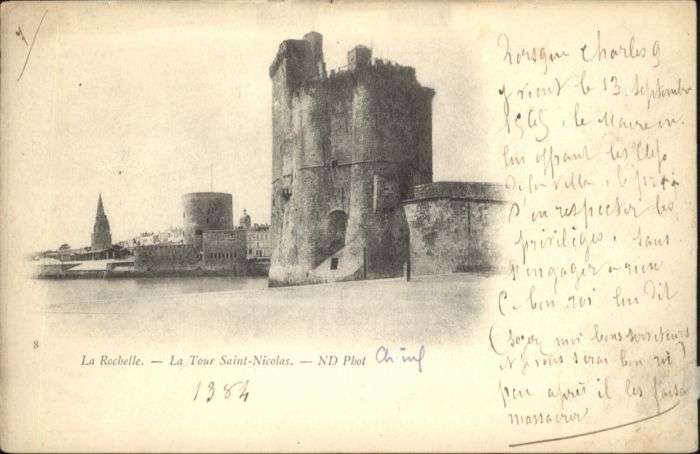 Lorsque Charles 9
y vient le 13 septembre
1565, le Maire en
lui offrant les clefs
de la ville, le pria
d'en respecter les
privilèges, sans
s'engager a rien
ce bon roi lui dit
(soyez moi bons serviteurs
et je vous serai bon roi)
peu après il les faisa
massacrer
8
La Rochelle. — La Tour Saint-Nicolas. — ND Phot
1384